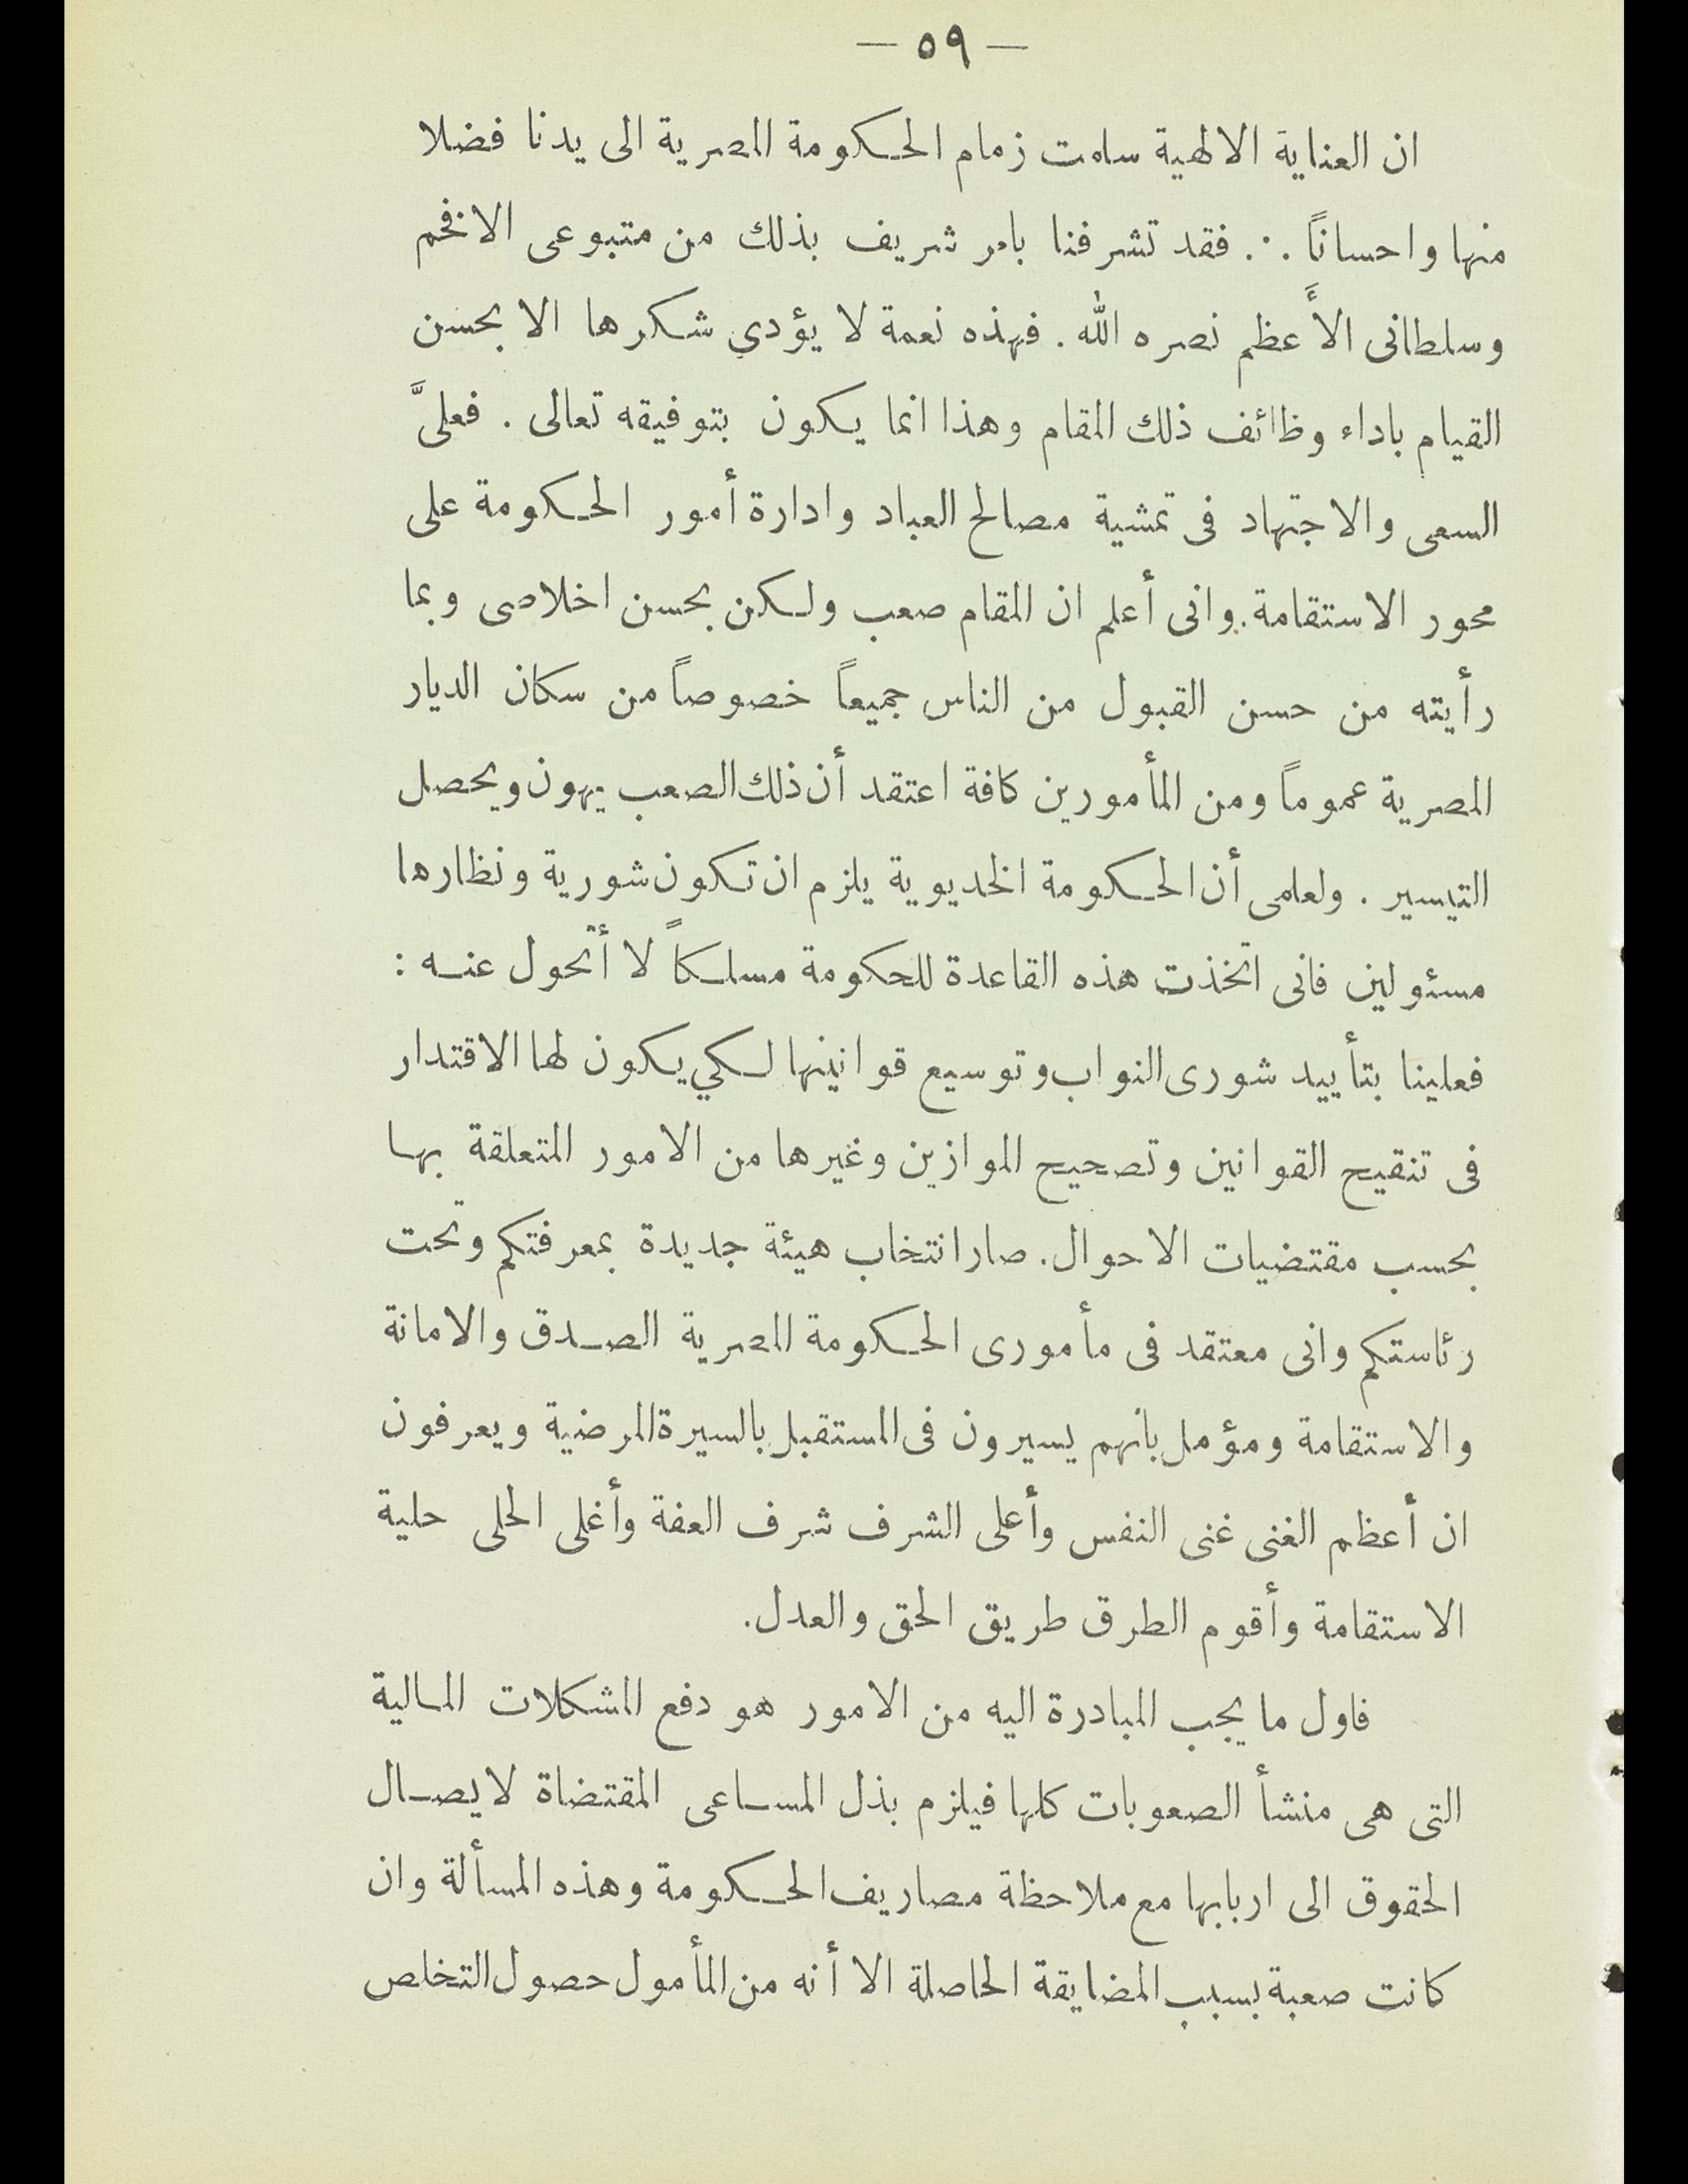 — ٥٩ —
ان العناية الالهية سلمت زمام الحكومة المصرية الى يدنا فضلا
منها واحساناً ∴ فقد تشرفنا بامر شريف بذلك من متبوعى الافخم
وسلطانى الأَعظم نصره الله . فهذه نعمة لا يؤدي شكرها الا بحسن
القيام باداء وظائف ذلك المقام وهذا انما يكون بتوفيقه تعالى . فعلىَّ
السعى والاجتهاد فى تمشية مصالح العباد وادارة أمور الحكومة على
محور الاستقامة . وانى أعلم ان المقام صعب ولكن بحسن اخلاصى وبما
رأيته من حسن القبول من الناس جميعاً خصوصاً من سكان الديار
المصرية عموماً ومن المأمورين كافة اعتقد أن ذلك الصعب يهون ويحصل
التيسير . ولعلمى أن الحكومة الخديوية يلزم ان تكون شورية ونظارها
مسئولين فانى اتخذت هذه القاعدة للحكومة مسلكاً لا أتحول عنه :
فعلينا بتأييد شورى النواب وتوسيع قوانينها لكي يكون لها الاقتدار
فى تنقيح القوانين وتصحيح الموازين وغيرها من الامور المتعلقة بها
بحسب مقتضيات الاحوال . صار انتخاب هيئة جديدة بمعرفتكم وتحت
رئاستكم وانى معتقد فى مأمورى الحكومة المصرية الصدق والامانة
والاستقامة ومؤمل بانهم يسيرون فى المستقبل بالسيرة المرضية ويعرفون
ان أعظم الغنى غنى النفس وأعلى الشرف شرف العفة وأغلى الحلى حلية
الاستقامة وأقوم الطرق طريق الحق والعدل .
فاول ما يجب المبادرة اليه من الامور هو دفع المشكلات المالية
التى هى منشأ الصعوبات كلها فيلزم بذل المساعى المقتضاة لايصال
الحقوق الى اربابها مع ملاحظة مصاريف الحكومة وهذه المسألة وان
كانت صعبة بسبب المضايقة الحاصلة الا أنه من المأمول حصول التخلص